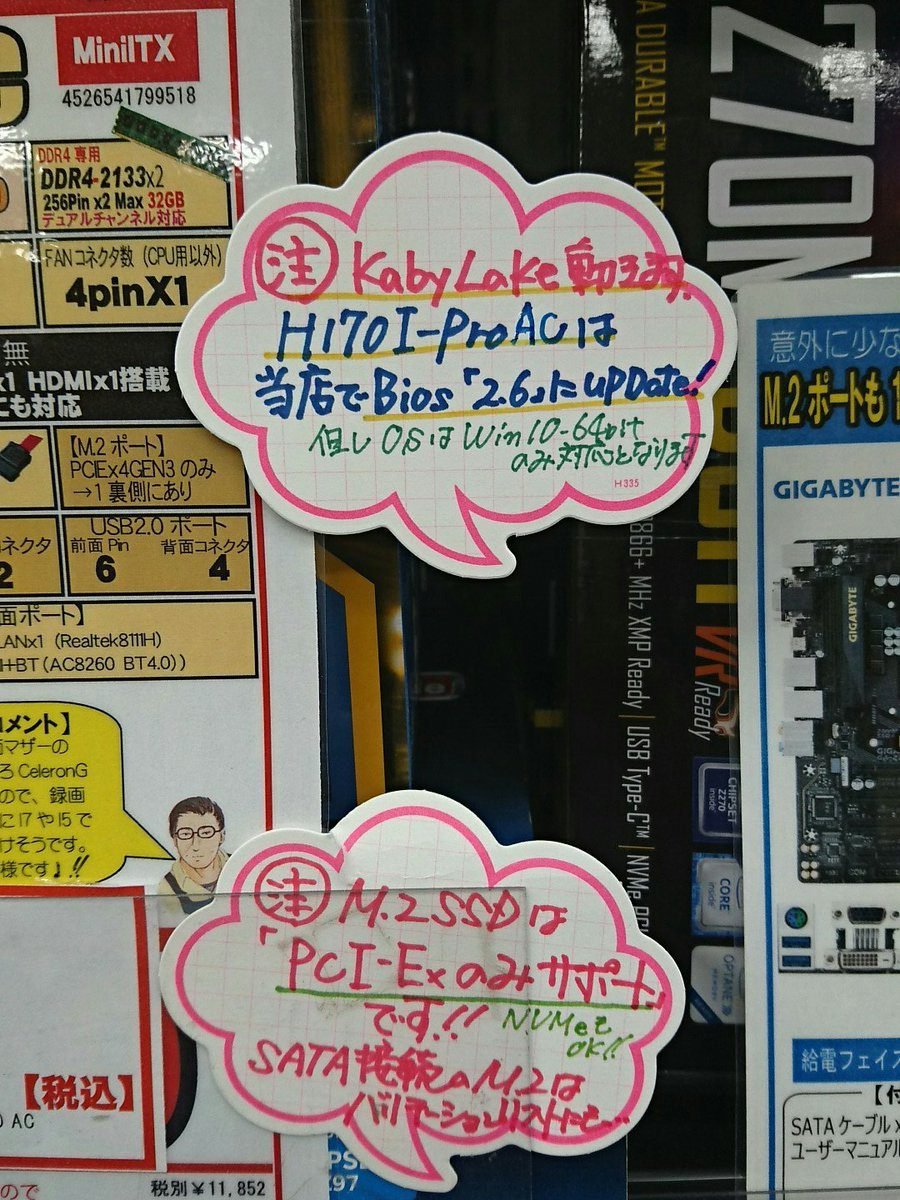 MiniITX
4526541799518
DDR4 専用
DDR4-2133x2
256Pin x2 Max 32GB
デュアルチャンネル対応
FANコネクタ数 (CPU用以外)
4pinX1
無
x1 HDMIx1搭載
にも対応
【M.2 ポート】
PCIEx4GEN3 のみ
→1 裏側にあり
USB2.0 ポート
コネクタ
前面 Pin
背面コネクタ
2
6
4
面ポート】
LANx1 (Realtek8111H)
+BT (AC8260 BT4.0))
コメント】
マザーの
ろ CeleronG
ので、録画
に I7 や I5 で
けそうです。
様です』!!
注 KabyLake 動きます
H170I-ProACは
当店でBios「2.6」にupDate!
但し OSは Win10-64bit
のみ対応となります
H335
注 M.2SSDは
「PCI-Exのみサポート」
です!!
NVMeも
OK!!
SATA接続のM2は
バリデーションリストだと…
【税込】
AC
ので
税別¥11,852
A DURABLE™
Z70N
866+ MHz XMP Ready | USB Type-C™ | NVMe
VR
Ready
CHIPSET
Z270
inside
CORE
inside
OPTANE
意外に少な
M.2 ポートも
GIGABYTE
GIGABYTE
給電フェイズ
【付
SATA ケーブル x
ユーザーマニュアル
97